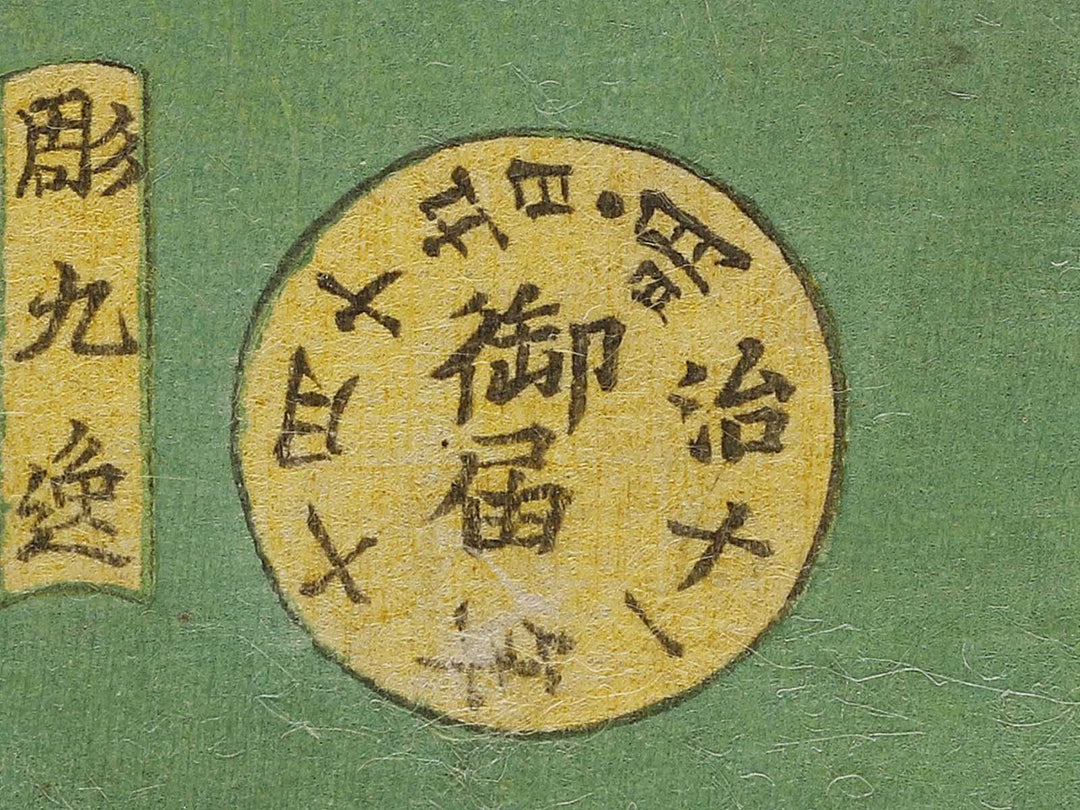 明治十一年十月十五日
御届
彫九